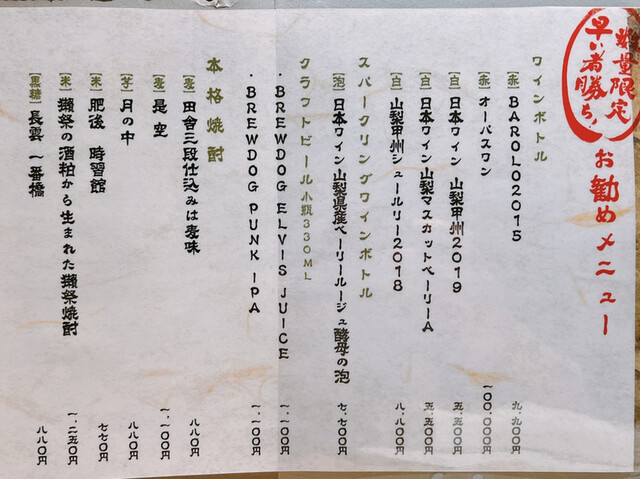 数量限定
早い者勝ち!
お勧めメニュー
ワインボトル
[赤] BAROLO2015 九、九〇〇円
[赤] オーパスワン 一〇〇、〇〇〇円
[白] 日本ワイン 山梨甲州2019 五、五〇〇円
[白] 日本ワイン 山梨マスカットベーリーA 五、五〇〇円
[白] 山梨甲州シュールリー2018 八、八〇〇円
スパークリングワインボトル
[泡] 日本ワイン山梨県産ベーリールージュ酵母の泡 七、七〇〇円
クラフトビール 小瓶330ML
・BREWDOG ELVIS JUICE 一、一〇〇円
・BREWDOG PUNK IPA 一、一〇〇円
本格焼酎
[麦] 田舎三段仕込みは麦味 八八〇円
[麦] 是空 一、一〇〇円
[芋] 月の中 八八〇円
[米] 肥後 時習館 七七〇円
[米] 獺祭の酒粕から生まれた獺祭焼酎 一、二五〇円
[黒糖] 長雲 一番橋 八八〇円